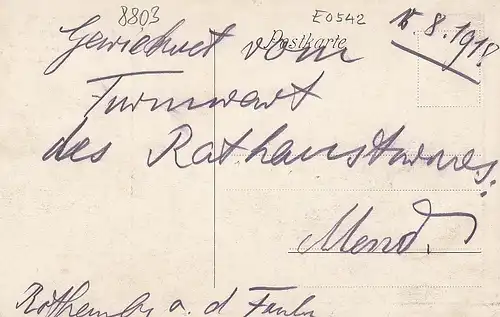 8803
E0542
Postkarte
15.8.1918
Gezeichnet vom
Turmwart
des Rathausturmes:
Rothenbg a. d Taub